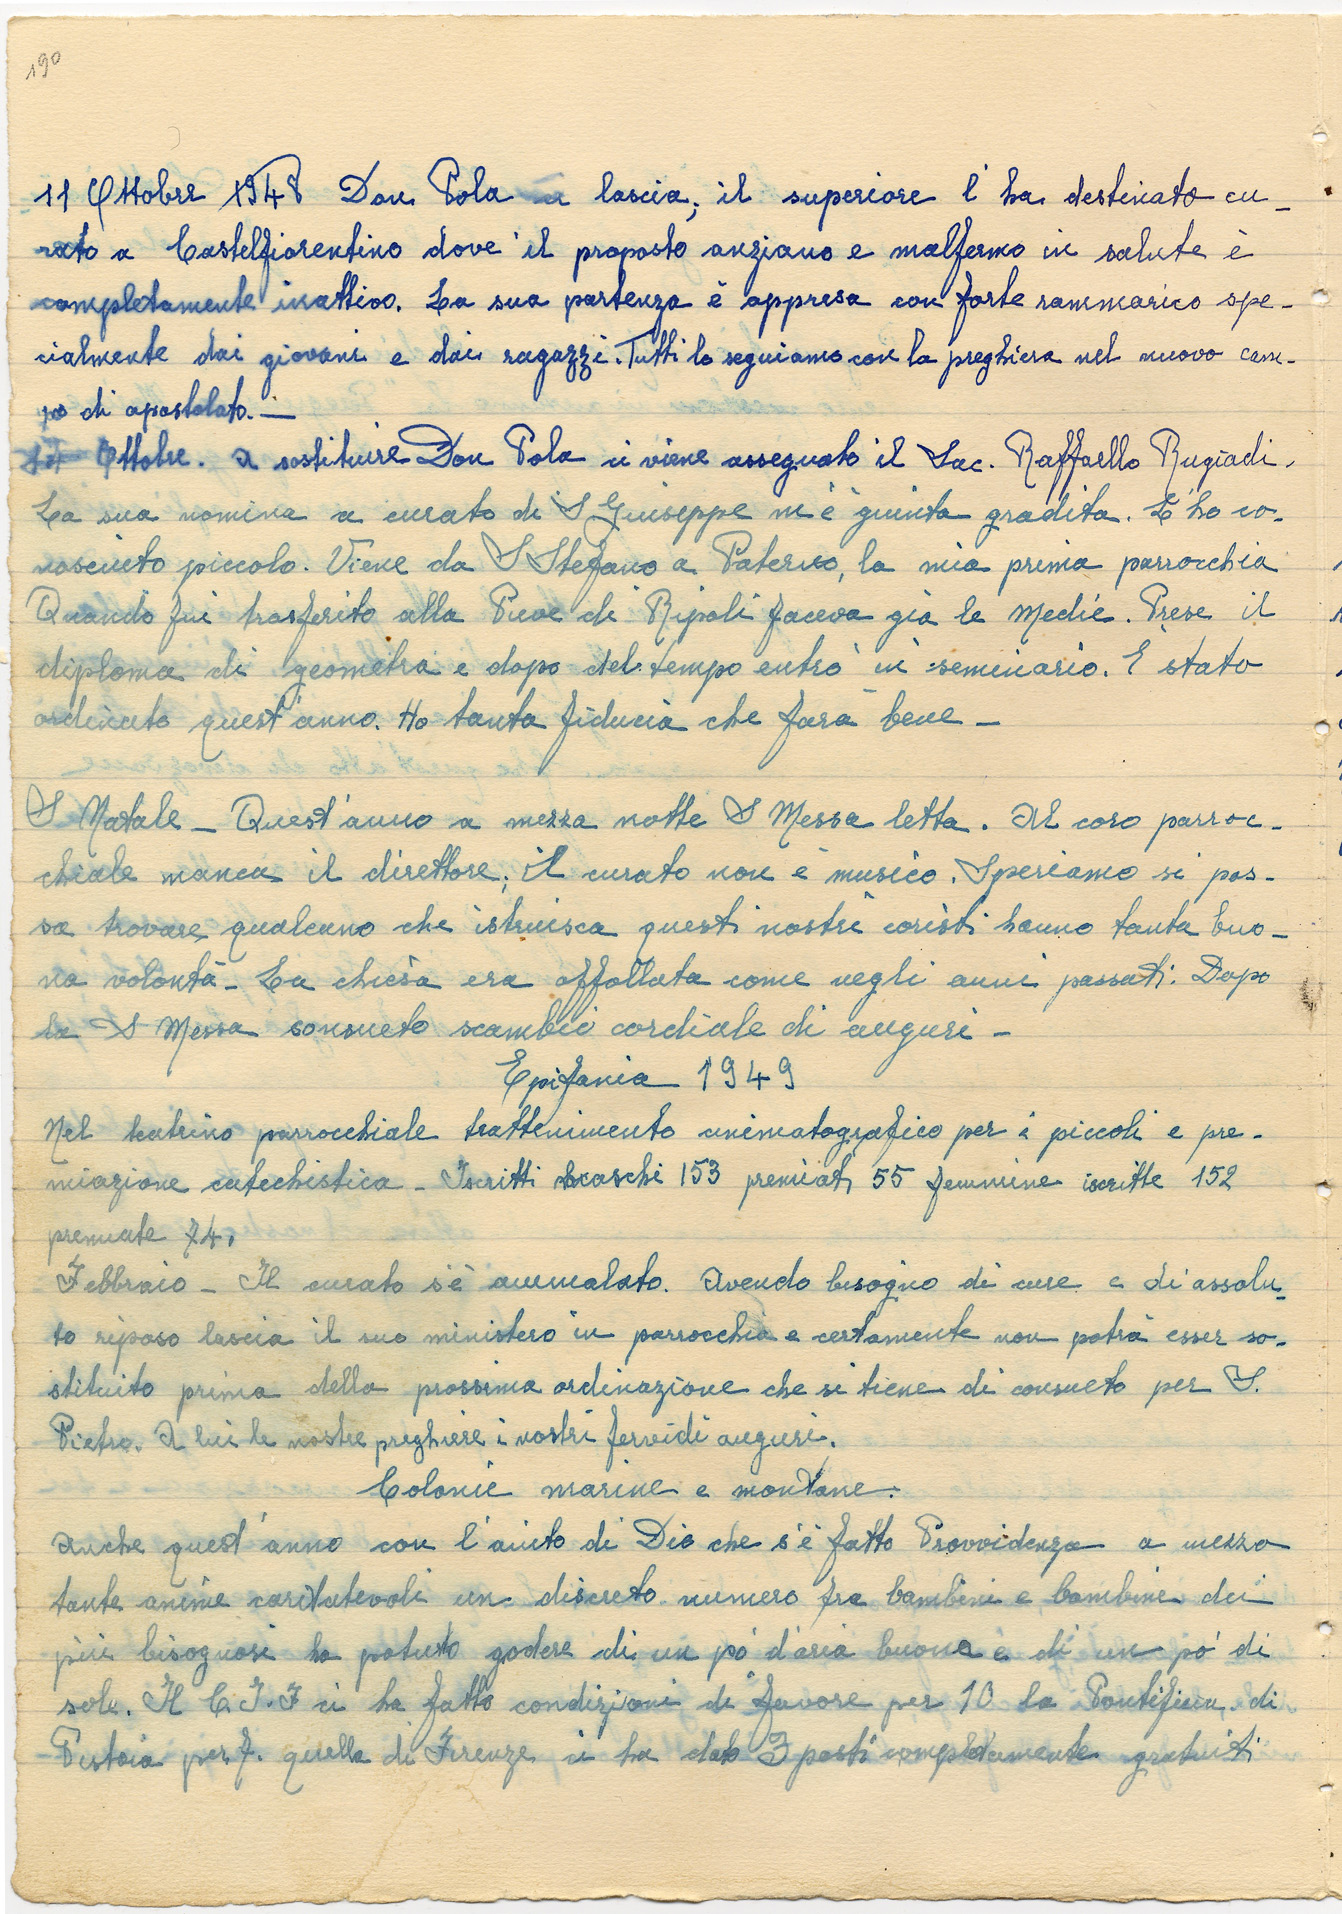 190
11 Ottobre 1948 Don Pola ci lascia; il superiore l'ha destinato cu-
rato a Castelfiorentino dove il proposto anziano e malfermo in salute è
completamente inattivo. La sua partenza è appresa con forte rammarico spe-
cialmente dai giovani e dai ragazzi. Tutti lo seguiamo con la preghiera nel nuovo cam-
po di apostolato. —
Ottobre. A sostituire Don Pola ci viene assegnato il Sac. Raffaello Rugiadi.
La sua nomina a curato di S Giuseppe m'è giunta gradita. L'ho co-
nosciuto piccolo. Viene da S Stefano a Paterno, la mia prima parrocchia
Quando fui trasferito alla Pieve di Ripoli faceva già le Medie. Prese il
diploma di geometra e dopo del tempo entrò in seminario. È stato
ordinato quest'anno. Ho tanta fiducia che farà bene —
S Natale — Quest'anno a mezza notte S Messa letta. Al coro parroc-
chiale manca il direttore; il curato non è musico. Speriamo si pos-
sa trovare qualcuno che istruisca questi nostri coristi hanno tanta buo-
na volontà — La chiesa era affollata come negli anni passati. Dopo
la S Messa consueto scambio cordiale di auguri —
Epifania 1949
Nel teatrino parrocchiale trattenimento cinematografico per i piccoli e pre-
miazione catechistica — Iscritti maschi 153 premiati 55 femmine iscritte 152
premiate 74.
Febbraio — Il curato s'è ammalato. Avendo bisogno di cure e di assolu-
to riposo lascia il suo ministero in parrocchia e certamente non potrà esser so-
stituito prima della prossima ordinazione che si tiene di consueto per S.
Pietro. A lui le nostre preghiere i nostri fervidi auguri.
Colonie marine e montane.
Anche quest'anno con l'aiuto di Dio che s'è fatto Provvidenza a mezzo
tante anime caritatevoli un discreto numero fra bambini e bambine dei
più bisognosi ha potuto godere di un pò d'aria buona e di un po' di
sole. Il C.I.F ci ha fatto condizioni di favore per 10 la Pontificia di
Pistoia per 7. quella di Firenze ci ha dato 3 posti completamente gratuiti